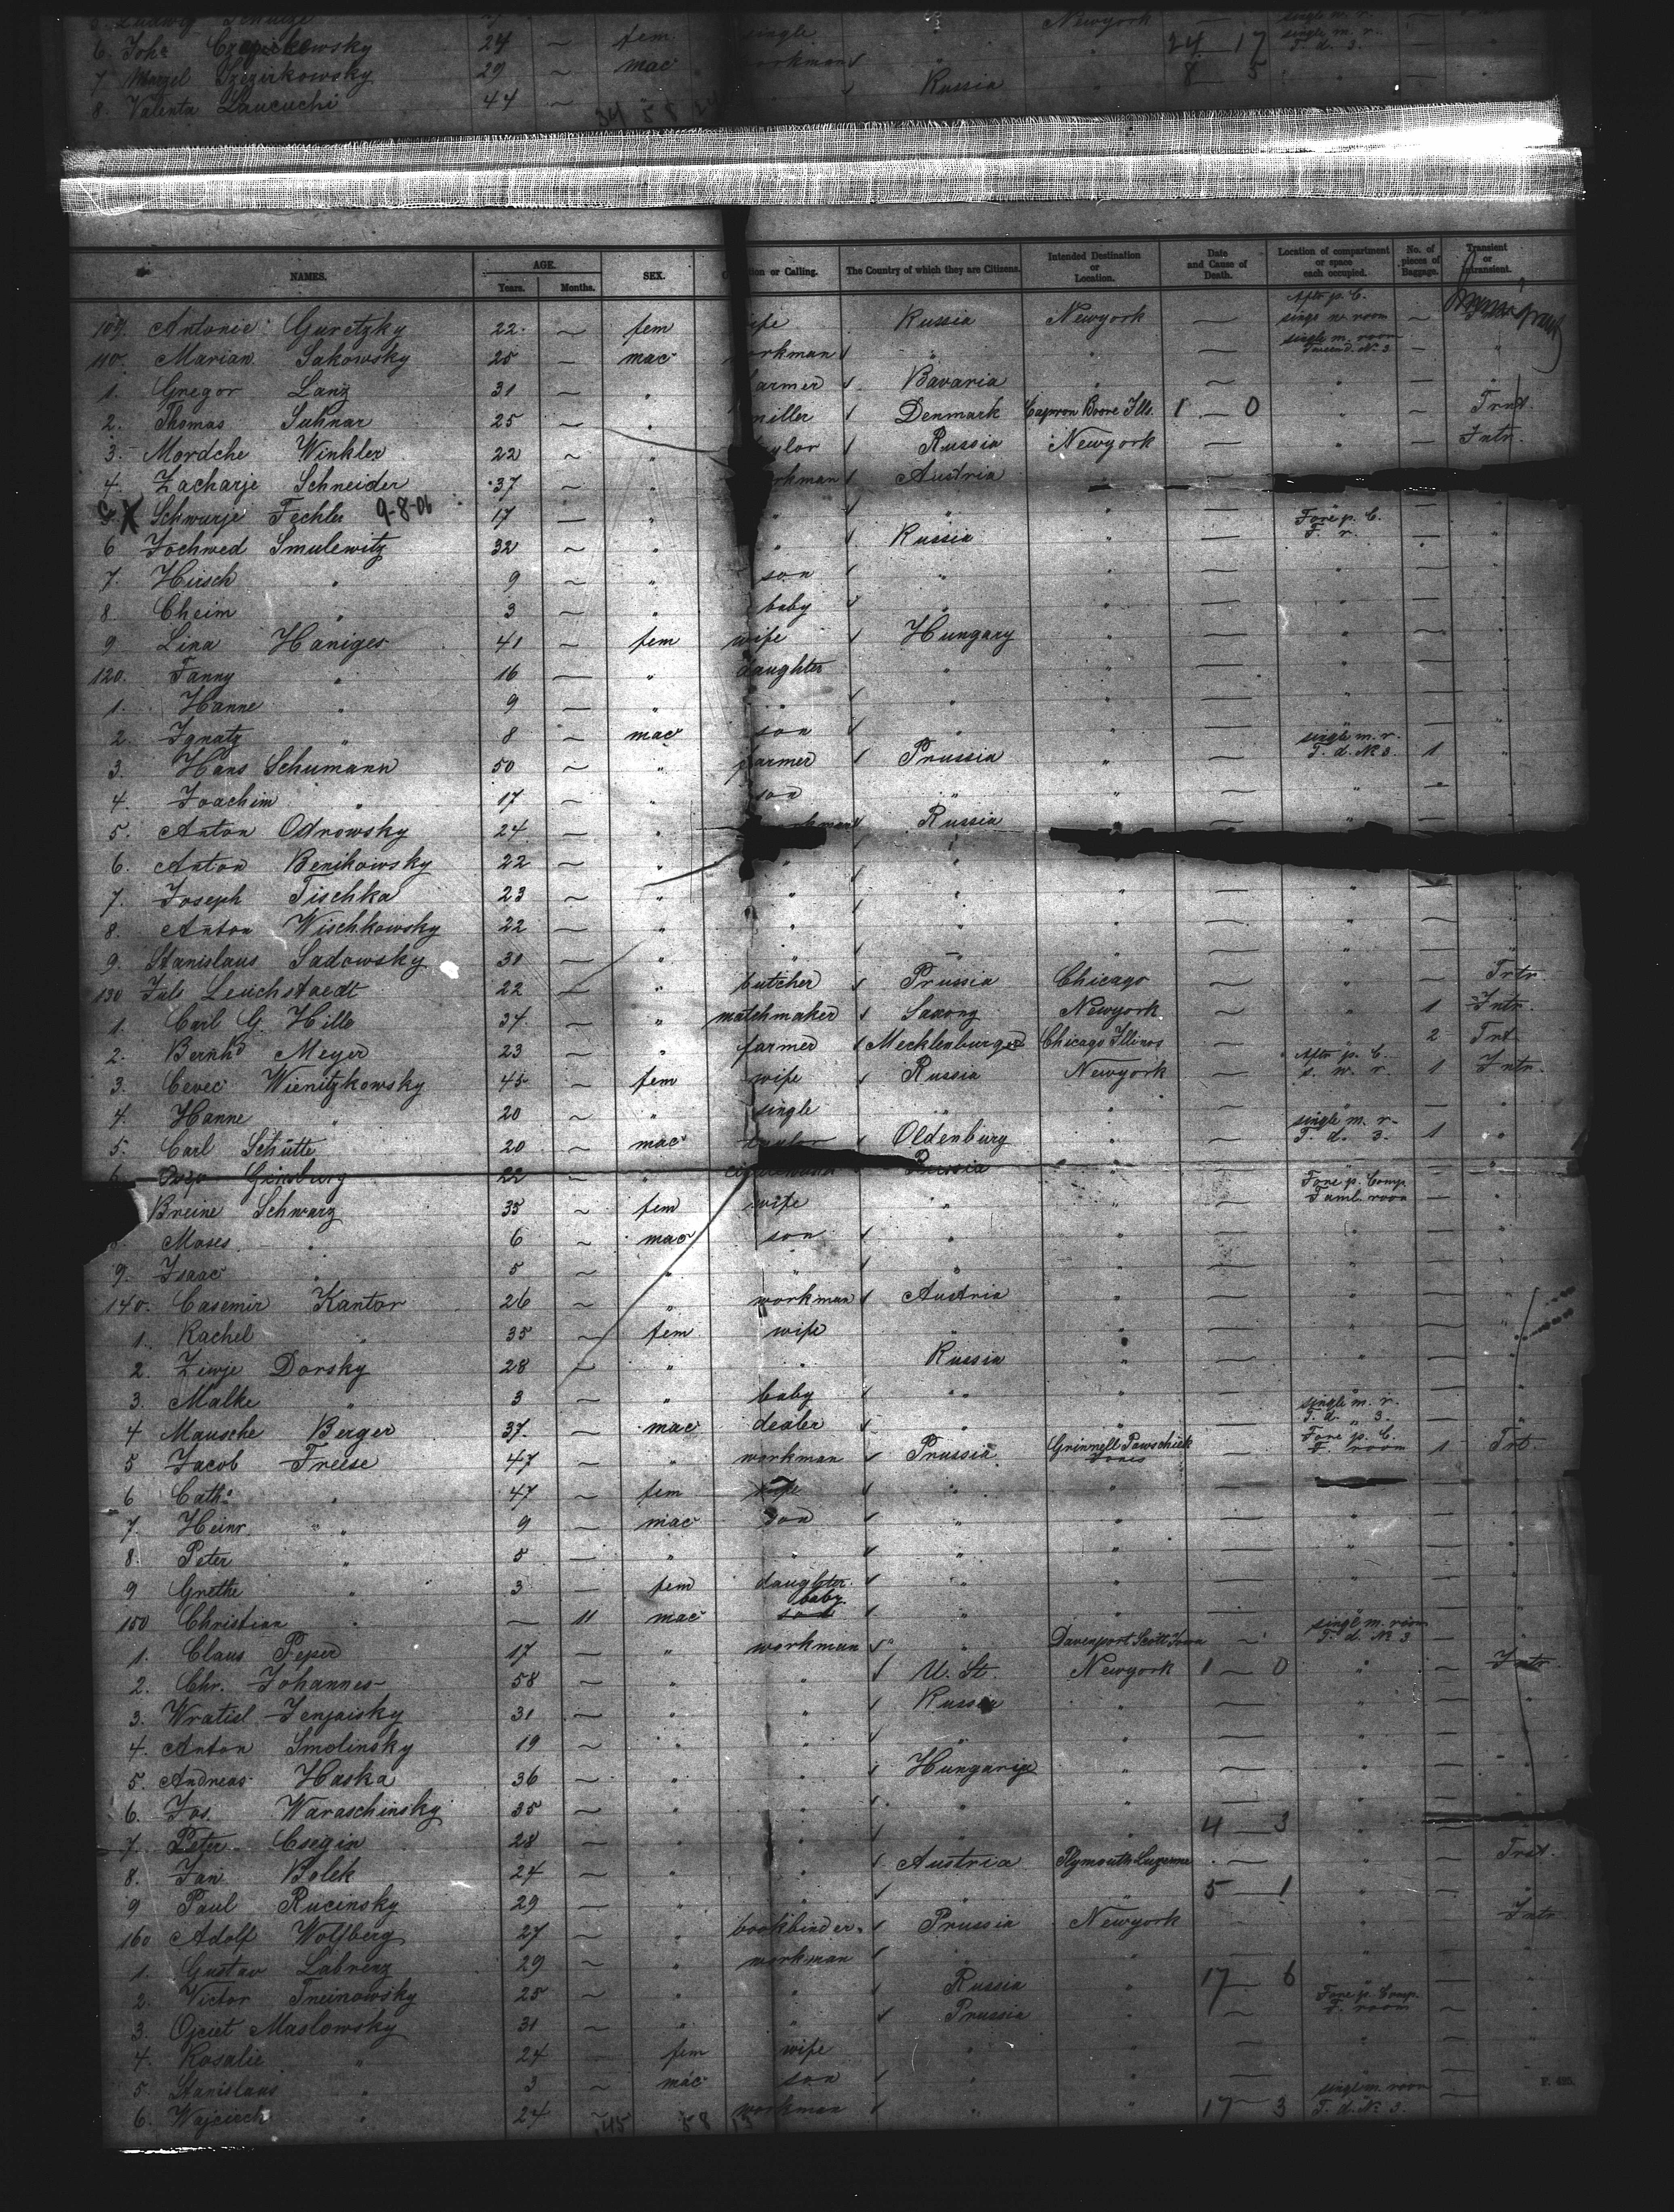 Ludwig Schulze Newyork
6. Joh. Czapirkowsky 24 ~ fem single " 24 — 17 single m. r. T. d. 3.
7. Margel Szezirkowsky 29 ~ mac workman " 8 5
8. Valenta Laucuchi 44 ~ Russia
NAMES. AGE. Years. Months. SEX. tion or Calling. The Country of which they are Citizens. Intended Destination or Location. Date and Cause of Death. Location of compartment or space each occupied. No. of pieces of Baggage. Transient or Intransient.
109. Antonie Guretzky 22 ~ fem ife Russia Newyork — Aftr p. C. singl w. room —
110. Marian Sakowsky 25 ~ mac orkman " " — single m. room Tweend. No 3 — "
1. Gregor Lanz 31 ~ " armer Bavaria " — " — "
2. Thomas Suhnar 25 ~ " miller Denmark Capron Boone Ills. 1 — 0 " — Trnt.
3. Mordche Winkler 22 ~ " aylor Russia Newyork — " — Intr.
4. Zacharje Schneider 37 ~ " rkman Austria
X Schwurje Fechler 9-8-06 17 — " " " " — Fore p. C. F. r. — "
6 Jochwed Smulewitz 32 ~ " " Russia " — — "
7. Hirsch " 9 ~ " son " " — " — "
8 Cheim " 3 ~ " baby " " — " — "
9 Lina Haniges 41 ~ fem wife Hungary " — " — "
120. Fanny " 16 — " daughter " " — " — "
1. Hanne " 9 — " " " " — " — "
2. Ignatz " 8 ~ mac son " " — single m. r. — "
3. Hans Schumann 50 ~ " farmer Prussia " — T. d. No 3. 1 "
4. Joachim " 17 ~ " son " " — " — "
5. Anton Odrowsky 24 ~ " workman Russia
6. Anton Benikowsky 22 ~ " " "
7. Joseph Tischka 23 ~ " " " " — " — "
8. Anton Wischkowsky 22 — " " " " — " — "
9. Stanislaus Sadowsky 31 ~ " " " " — " — "
130 Juls Leuchstaedt 22 — " butcher Prussia Chicago — " — Trtr
1. Carl G. Hille 34 ~ " matchmaker Saxony Newyork — " 1 Intr.
2. Bernhd Meyer 23 ~ " farmer Mecklenburger Chicago Illinos — " 2 Trnt.
3. Cevec Wienitzkowsky 45 ~ fem wife Russia Newyork — Aftr p. C. s. w. r. 1 Intr.
4. Hanne " 20 ~ " single " " — " — "
5. Carl Schütte 20 ~ mac Oldenburg " — single m. r. T. d. 3. 1 "
6. Ginsburg 22 ~ " Russia " — " — "
Breine Schwarz 35 ~ fem wife " " — Fore p. Comp. Faml. room — "
Moses " 6 ~ mac son " " — " — "
9. Isaac " 5 ~ " " " " — " — "
140. Casemir Kantor 26 ~ " workman Austria " — " — "
1. Rachel " 35 ~ fem wife " " — " — "
2. Zewje Dorsky 28 ~ " " Russia " — " — "
3. Malke " 3 ~ " baby " " — " — "
4 Mausche Berger 37 ~ mac dealer " " — single m. r. T. d. " 3. — "
5 Jacob Freese 47 ~ " workman Prussia Grinnell Powschiek — Fore p. C. F. room 1 Trt.
6 Cath. " 47 ~ fem wife " "
7. Heinr. " 9 ~ mac son " " — " — "
8. Peter " 5 — " " " " — " — "
9 Grethe " 3 — fem daughter " " — " — "
150 Christian " — 11 mac baby " " — " — "
1. Claus Peper 17 — " workman " Davenport Scott Iowa ~ single m. room T. d. No 3 — "
2. Chr. Johannes 58 ~ " " U. St. Newyork 1 — 0 " — Intr.
3. Wratisl Jenjaisky 31 ~ " " Russia " — " — "
4. Anton Smolinsky 19 ~ " " " " — " — "
5. Andreas Haska 36 ~ " " Hungaria " — " — "
6. Jos. Waraschinsky 35 ~ " " " " — " — "
7. Peter Csegin 28 — " " " " 4 — 3 "
8. Jan Bolek 24 ~ " " Austria Plymouth Luzerne — " — Trnt.
9 Paul Rucinsky 29 — " " " " 5 — 1 " — "
160 Adolf Wolfberg 27 ~ " bookbinder Prussia Newyork " — Intr
1. Gustav Labrenz 29 ~ " workman " " " — "
2. Victor Treinowsky 25 ~ " " Russia " 17 — 6 "
3. Ojciet Maslowsky 31 ~ " " Prussia " ~ Fore p. Comp. F. room ~ "
4. Rosalie " 24 fem wife " " — " — "
5. Stanislaus " 3 ~ mac son " " — " — "
6. Wojciech " 24 ~ workman " " 17 — 3 single m. room T. d. No 3. —